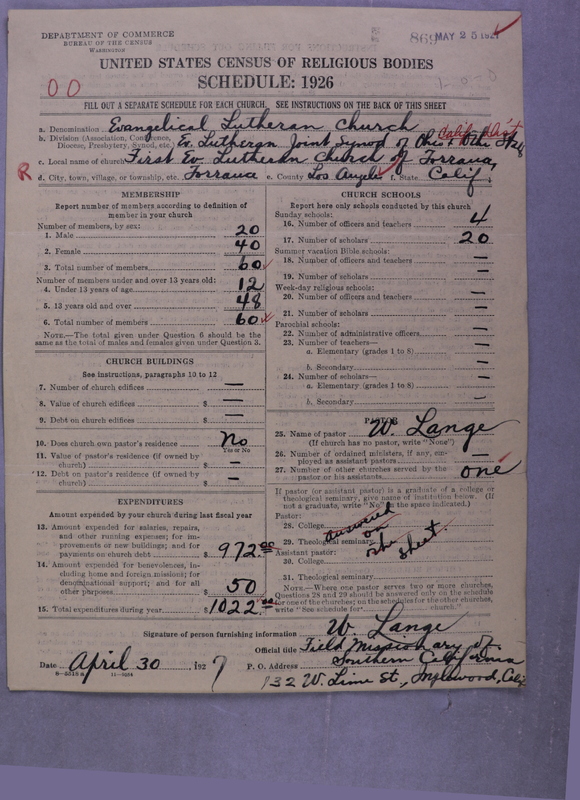 DEPARTMENT OF COMMERCE
BUREAU OF THE CENSUS
WASHINGTON
869 MAY 25 1927
UNITED STATES CENSUS OF RELIGIOUS BODIES
SCHEDULE: 1926
0 0
FILL OUT A SEPARATE SCHEDULE FOR EACH CHURCH. SEE INSTRUCTIONS ON THE BACK OF THIS SHEET
a. Denomination Evangelical Lutheran Church
b. Division (Association, Conference, Diocese, Presbytery, Synod, etc. Ev. Lutheran Joint Synod of Ohio & Othe Calif. Dist
c. Local name of church First Ev. Lutheran Church of Torrance,
R d. City, town, village, or township, etc. Torrance e. County Los Angeles f. State Calif.
MEMBERSHIP
Report number of members according to definition of member in your church
Number of members, by sex:
1. Male 20
2. Female 40
3. Total number of members 60
Number of members under and over 13 years old:
4. Under 13 years of age 12
5. 13 years old and over 48
6. Total number of members 60
NOTE.—The total given under Question 6 should be the same as the total of males and females given under Question 3.
CHURCH BUILDINGS
See instructions, paragraphs 10 to 12
7. Number of church edifices —
8. Value of church edifices $ —
9. Debt on church edifices $ —
10. Does church own pastor's residence No
Yes or No
11. Value of pastor's residence (if owned by church) $ —
12. Debt on pastor's residence (if owned by church) $ —
EXPENDITURES
Amount expended by your church during last fiscal year
13. Amount expended for salaries, repairs, and other running expenses; for improvements or new buildings; and for payments on church debt $ 972.00
14. Amount expended for benevolences, including home and foreign missions; for denominational support; and for all other purposes $ 50
15. Total expenditures during year $ 1022.00
CHURCH SCHOOLS
Report here only schools conducted by this church
Sunday schools:
16. Number of officers and teachers 4
17. Number of scholars 20
Summer vacation Bible schools:
18. Number of officers and teachers —
19. Number of scholars —
Week-day religious schools:
20. Number of officers and teachers —
21. Number of scholars —
Parochial schools:
22. Number of administrative officers —
23. Number of teachers—
a. Elementary (grades 1 to 8) —
b. Secondary —
24. Number of scholars—
a. Elementary (grades 1 to 8) —
b. Secondary —
PASTOR
25. Name of pastor W. Lange
(If church has no pastor, write "None")
26. Number of ordained ministers, if any, employed as assistant pastors —
27. Number of other churches served by the pastor or his assistants one
If pastor (or assistant pastor) is a graduate of a college or theological seminary, give name of institution below. (If not a graduate, write "No" in the space indicated.)
Pastor:
28. College
29. Theological seminary
answered on othe sheet.
Assistant pastor:
30. College
31. Theological seminary
NOTE.—Where one pastor serves two or more churches, Questions 28 and 29 should be answered only on the schedule for one of the churches; on the schedules for the other churches, write "See schedule for church."
Signature of person furnishing information W. Lange
Official title Field Missionary of Southern California
Date April 30, 1927
P. O. Address 132 W. Lime St., Inglewood, Calif
8—5518 a 11—9224